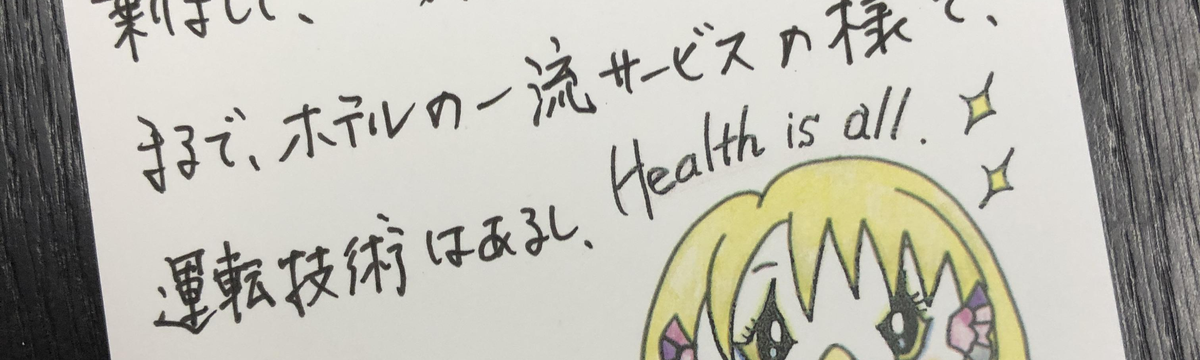 まるで、ホテルの一流サービスの様で、
Health is all.
運転技術はあるし、